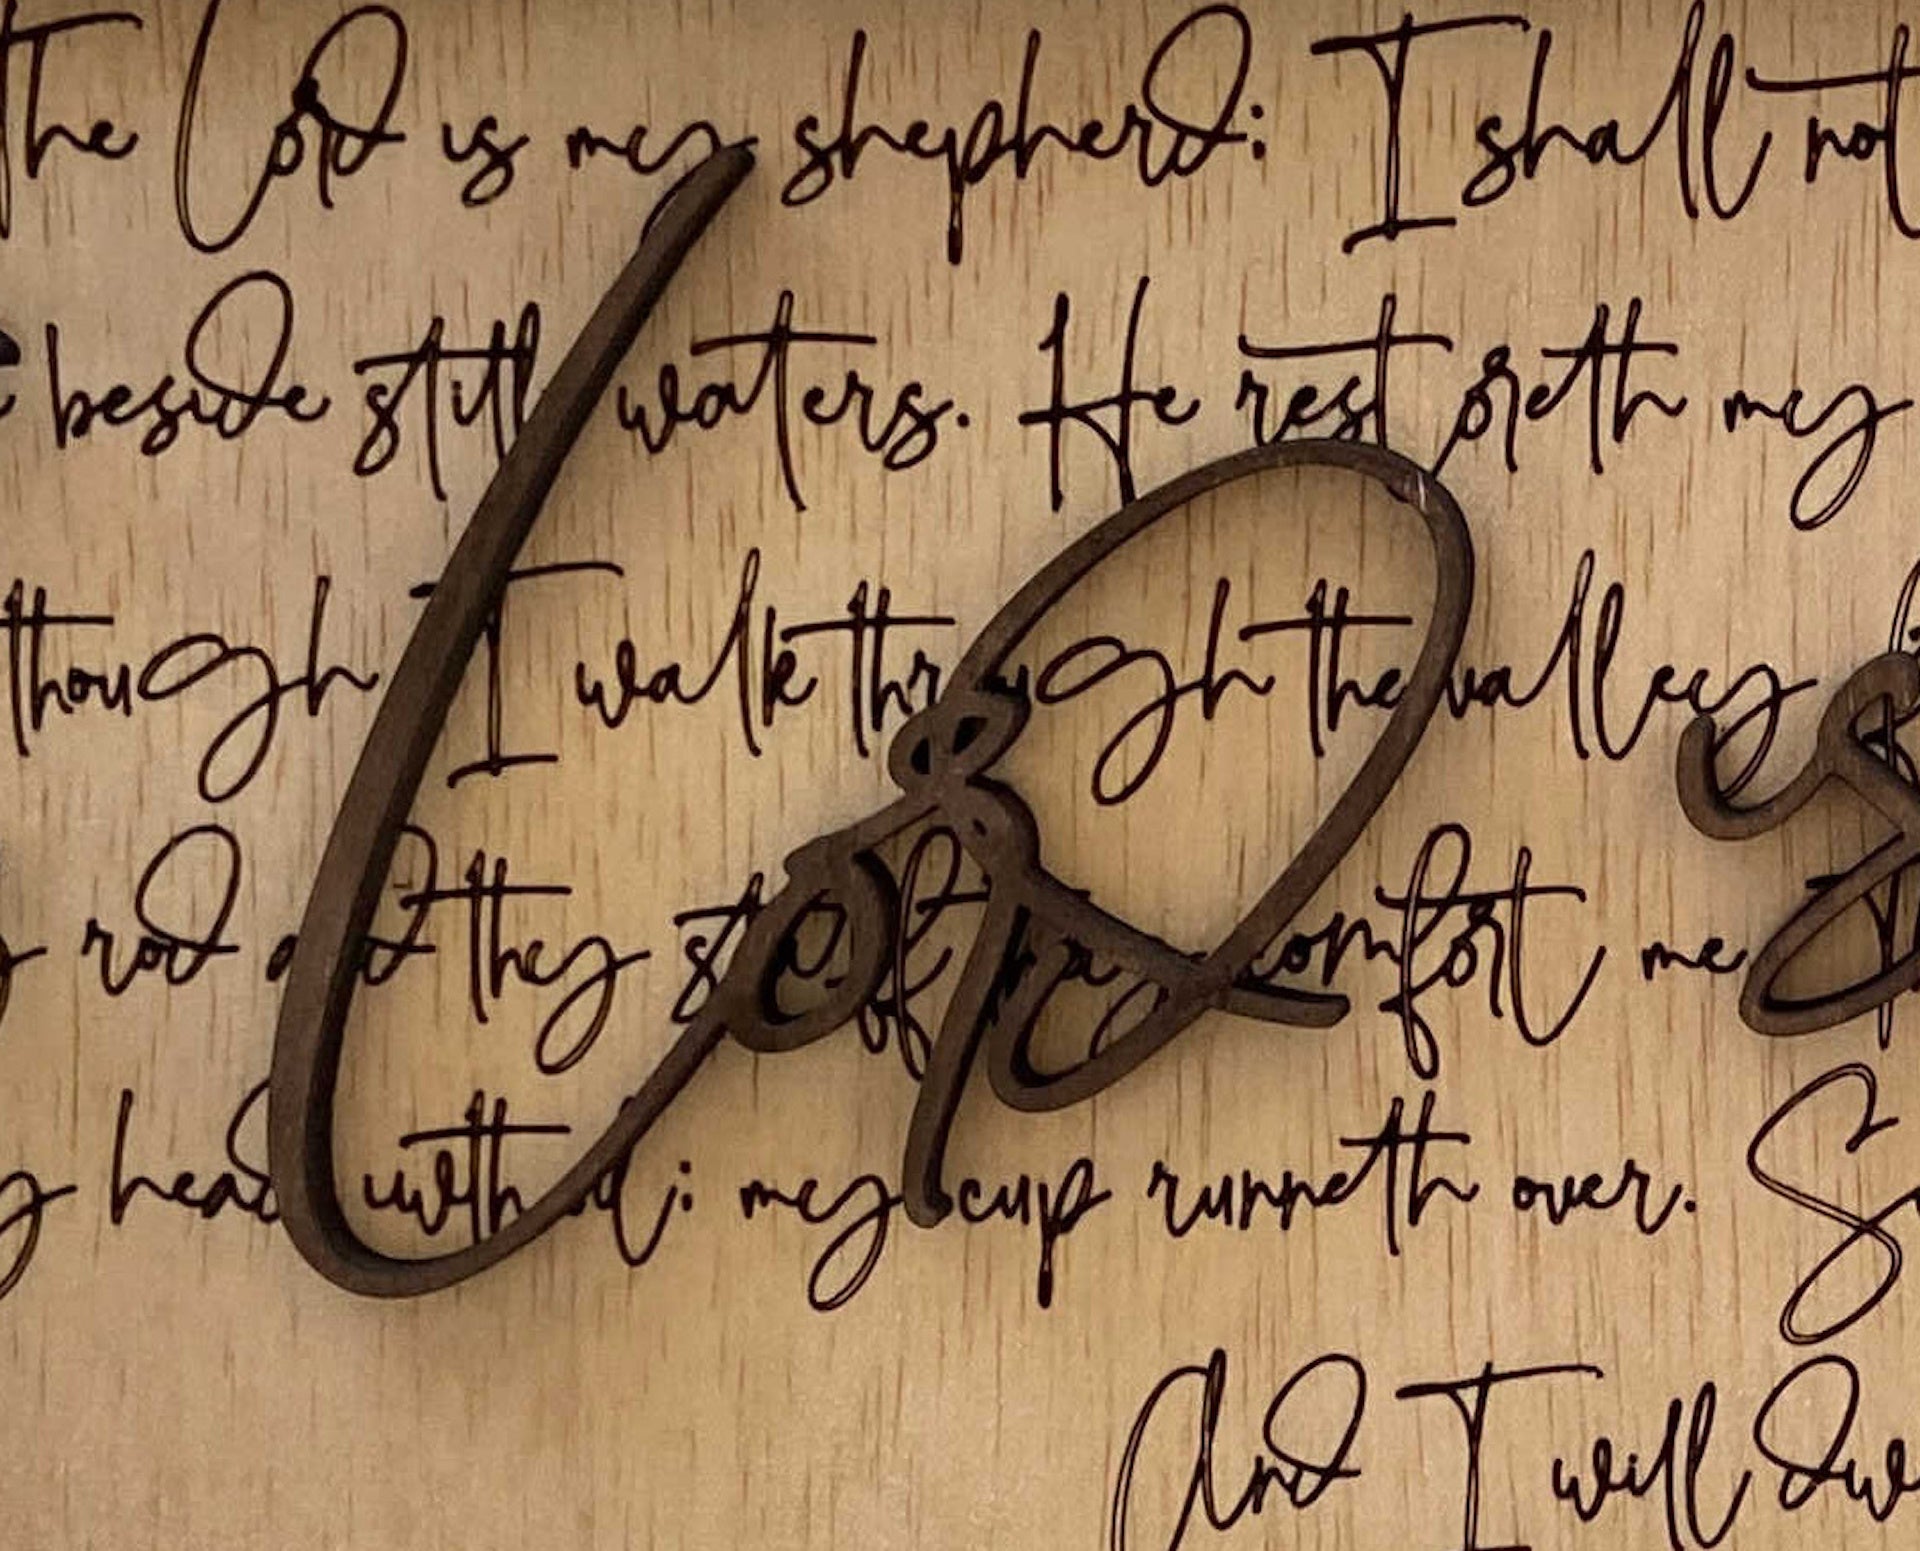 the Lord is my shepherd: I shall not
beside still waters. He restoreth my
though I walk through the valley
rod and thy staff they comfort me
head with oil: my cup runneth over.
And I will
Lord